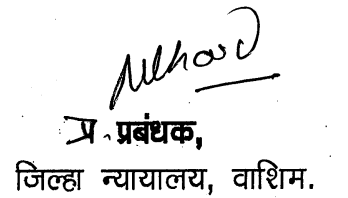 प्र. प्रबंधक,
जिल्हा न्यायालय, वाशिम.